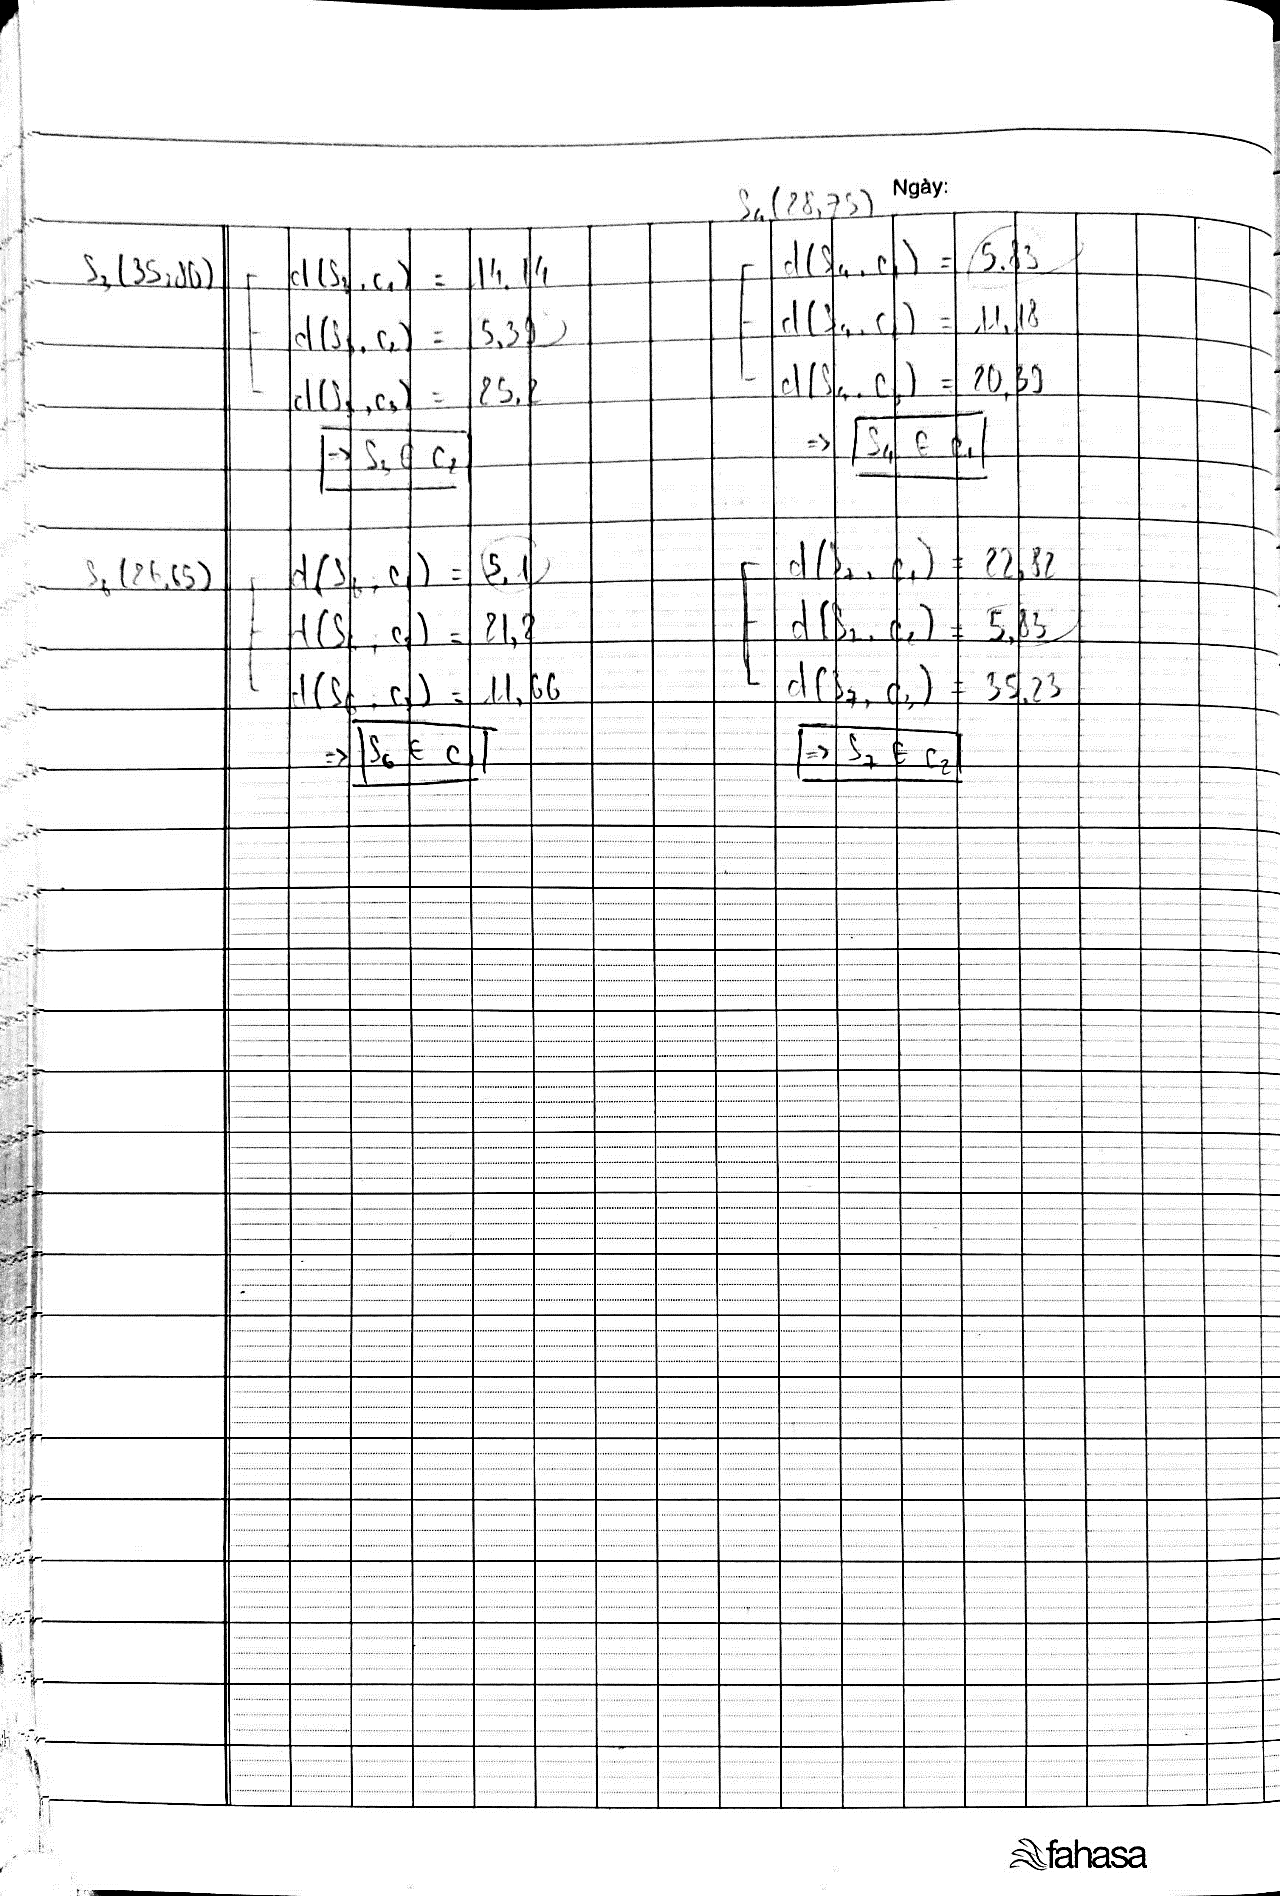 Ngày:
S₄(28,75)
S₃(35,80)
d(S₃, c₁) = 14.14
d(S₃, c₂) = 5,39
d(S₃, c₃) = 25,2
=> S₃ ∈ c₂
d(S₄, c₁) = 5.83
d(S₄, c₂) = 11,18
d(S₄, c₃) = 20,39
=> S₄ ∈ c₁
S₆(26,65)
d(S₆, c₁) = 5,1
d(S₆, c₂) = 21,2
d(S₆, c₃) = 11,66
=> S₆ ∈ c₁
d(S₇, c₁) = 22,82
d(S₇, c₂) = 5,83
d(S₇, c₃) = 35,23
=> S₇ ∈ c₂
fahasa